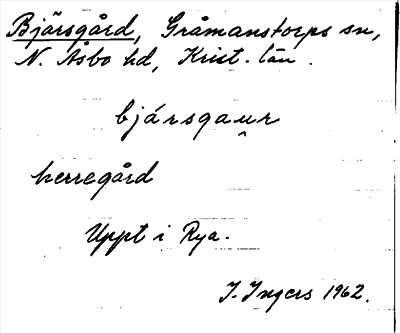 Bjärsgård, Gråmanstorps sn,
N. Åsbo hd, Krist. län.
bjársgau̯r
herregård
Uppt i Rya.
I. Ingers 1962.